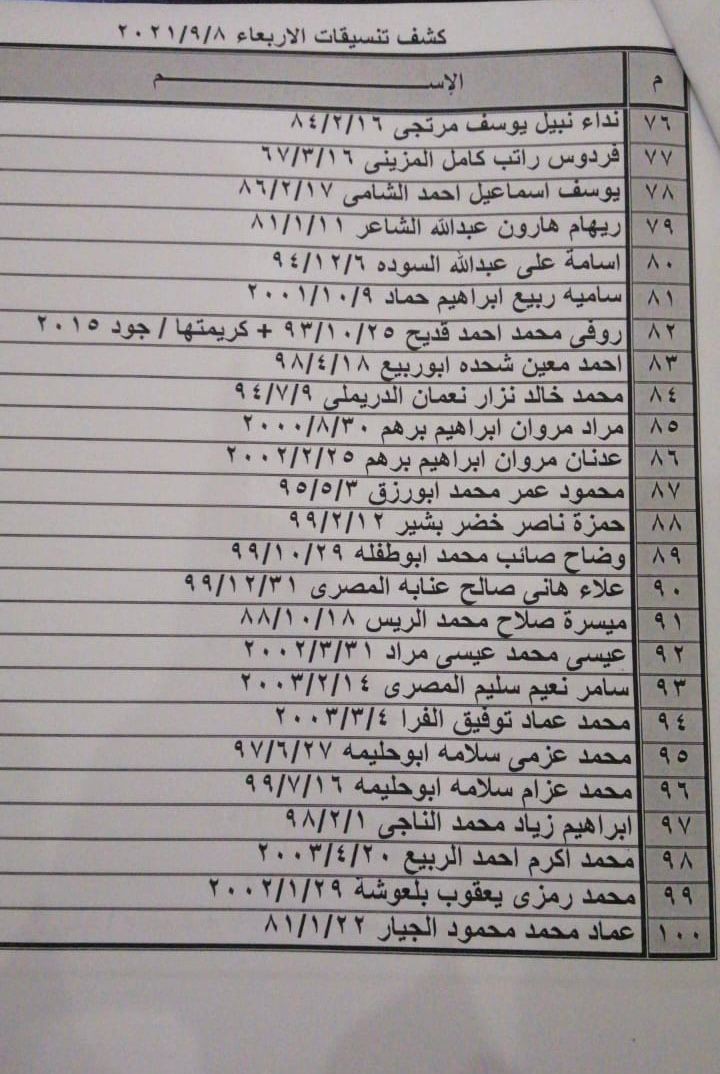 كشف تنسيقات الاربعاء ٢٠٢١/٩/٨
م الإســـــــــــــــــــم
٧٦ نداء نبيل يوسف مرتجى ٨٤/٢/١٦
٧٧ فردوس راتب كامل المزينى ٦٧/٣/١٦
٧٨ يوسف اسماعيل احمد الشامى ٨٦/٢/١٧
٧٩ ريهام هارون عبدالله الشاعر ٨١/١/١١
٨٠ اسامة على عبدالله السوده ٩٤/١٢/٦
٨١ ساميه ربيع ابراهيم حماد ٢٠٠١/١٠/٩
٨٢ روفى محمد احمد قديح ٩٣/١٠/٢٥ + كريمتها / جود ٢٠١٥
٨٣ احمد معين شحده ابوربيع ٩٨/٤/١٨
٨٤ محمد خالد نزار نعمان الدريملى ٩٤/٧/٩
٨٥ مراد مروان ابراهيم برهم ٢٠٠٠/٨/٣٠
٨٦ عدنان مروان ابراهيم برهم ٢٠٠٢/٢/٢٥
٨٧ محمود عمر محمد ابورزق ٩٥/٥/٣
٨٨ حمزة ناصر خضر بشير ٩٩/٢/١٢
٨٩ وضاح صائب محمد ابوطفله ٩٩/١٠/٢٩
٩٠ علاء هانى صالح عنابه المصرى ٩٩/١٢/٣١
٩١ ميسرة صلاح محمد الريس ٨٨/١٠/١٨
٩٢ عيسى محمد عيسى مراد ٢٠٠٢/٣/٣١
٩٣ سامر نعيم سليم المصرى ٢٠٠٣/٢/١٤
٩٤ محمد عماد توفيق الفرا ٢٠٠٣/٣/٤
٩٥ محمد عزمى سلامه ابوحليمه ٩٧/٦/٢٧
٩٦ محمد عزام سلامه ابوحليمه ٩٩/٧/١٦
٩٧ ابراهيم زياد محمد الناجى ٩٨/٢/١
٩٨ محمد اكرم احمد الربيع ٢٠٠٣/٤/٢٠
٩٩ محمد رمزى يعقوب بلعوشة ٢٠٠٢/١/٢٩
١٠٠ عماد محمد محمود الجيار ٨١/١/٢٢